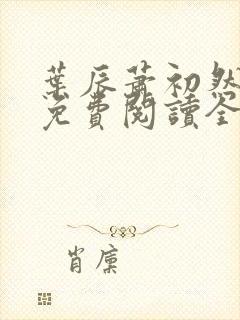 葉辰蕭初然
免費閱讀全
肖廩